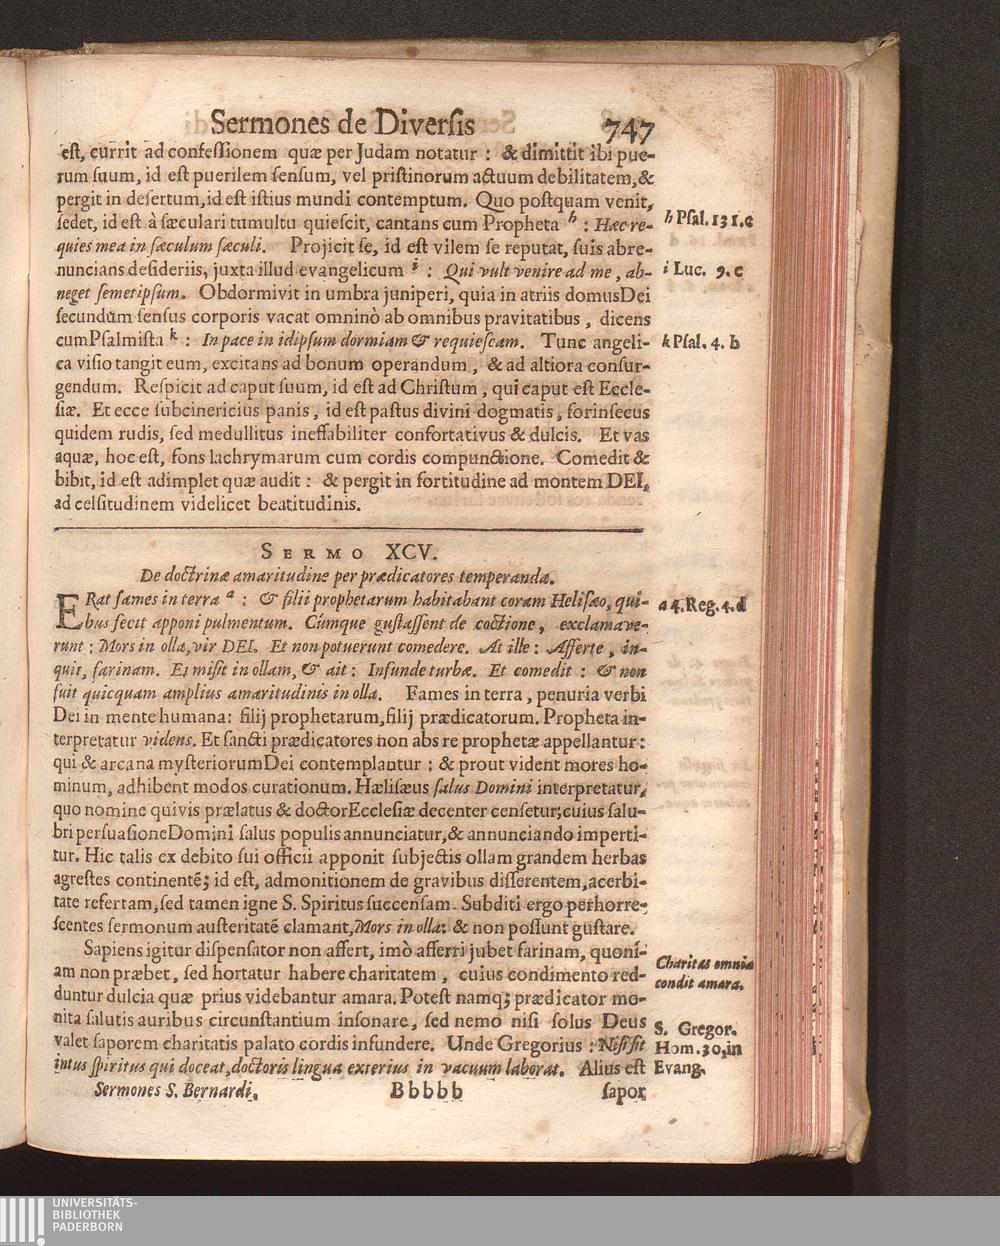 Sermones de Diversis 747
est, currit ad confessionem quæ per Judam notatur : & dimittit ibi pue-
rum suum, id est puerilem sensum, vel pristinorum actuum debilitatem, &
pergit in desertum, id est istius mundi contemptum. Quo postquam venit,
sedet, id est à sæculari tumultu quiescit, cantans cum Propheta h : Hæc re-
quies mea in sæculum sæculi. Projicit se, id est vilem se reputat, suis abre-
nuncians desideriis, juxta illud evangelicum i : Qui vult venire ad me, ab-
neget semetipsum. Obdormivit in umbra juniperi, quia in atriis domus Dei
secundum sensus corporis vacat omninò ab omnibus pravitatibus, dicens
cum Psalmista k : In pace in idipsum dormiam & requiescam. Tunc angeli-
ca visio tangit eum, excitans ad bonum operandum, & ad altiora consur-
gendum. Respicit ad caput suum, id est ad Christum, qui caput est Eccle-
siæ. Et ecce subcinericius panis, id est pastus divini dogmatis, forinsecus
quidem rudis, sed medullitus ineffabiliter confortativus & dulcis. Et vas
aquæ, hoc est, fons lachrymarum cum cordis compunctione. Comedit &
bibit, id est adimplet quæ audit : & pergit in fortitudine ad montem DEI,
ad celsitudinem videlicet beatitudinis.
h Psal. 131. c
i Luc. 9. c
k Psal. 4. b
SERMO XCV.
De doctrinæ amaritudine per prædicatores temperanda.
ERat fames in terra a : & filii prophetarum habitabant coram Helisæo, qui-
bus fecit apponi pulmentum. Cumque gustassent de coctione, exclamave-
runt : Mors in olla, vir DEI. Et non potuerunt comedere. At ille : Afferte, in-
quit, farinam. Et misit in ollam, & ait : Infunde turbæ. Et comedit : & non
fuit quicquam amplius amaritudinis in olla. Fames in terra, penuria verbi
Dei in mente humana: filij prophetarum, filij prædicatorum. Propheta in-
terpretatur videns. Et sancti prædicatores non abs re prophetæ appellantur:
qui & arcana mysteriorum Dei contemplantur : & prout vident mores ho-
minum, adhibent modos curationum. Hælisæus salus Domini interpretatur,
quo nomine quivis prælatus & doctor Ecclesiæ decenter censetur; cuius salu-
bri persuasione Domini salus populis annunciatur, & annunciando imperti-
tur. Hic talis ex debito sui officii apponit subjectis ollam grandem herbas
agrestes continentẽ; id est, admonitionem de gravibus disserentem, acerbi-
tate refertam, sed tamen igne S. Spiritus succensam. Subditi ergo perhorre-
scentes sermonum austeritatẽ clamant, Mors in olla: & non possunt gustare.
Sapiens igitur dispensator non affert, imò afferri jubet farinam, quoni-
am non præbet, sed hortatur habere charitatem, cuius condimento red-
duntur dulcia quæ prius videbantur amara. Potest namq; prædicator mo-
nita salutis auribus circunstantium insonare, sed nemo nisi solus Deus
valet saporem charitatis palato cordis infundere. Unde Gregorius : Nisi sit
intus spiritus qui doceat, doctoris lingua exterius in vacuum laborat. Alius est
a 4. Reg. 4. d
Charitas omnia
condit amara.
S. Gregor.
Hom. 30. in
Evang.
Sermones S. Bernardi. Bbbbb sapor
UNIVERSITÄTS-
BIBLIOTHEK
PADERBORN